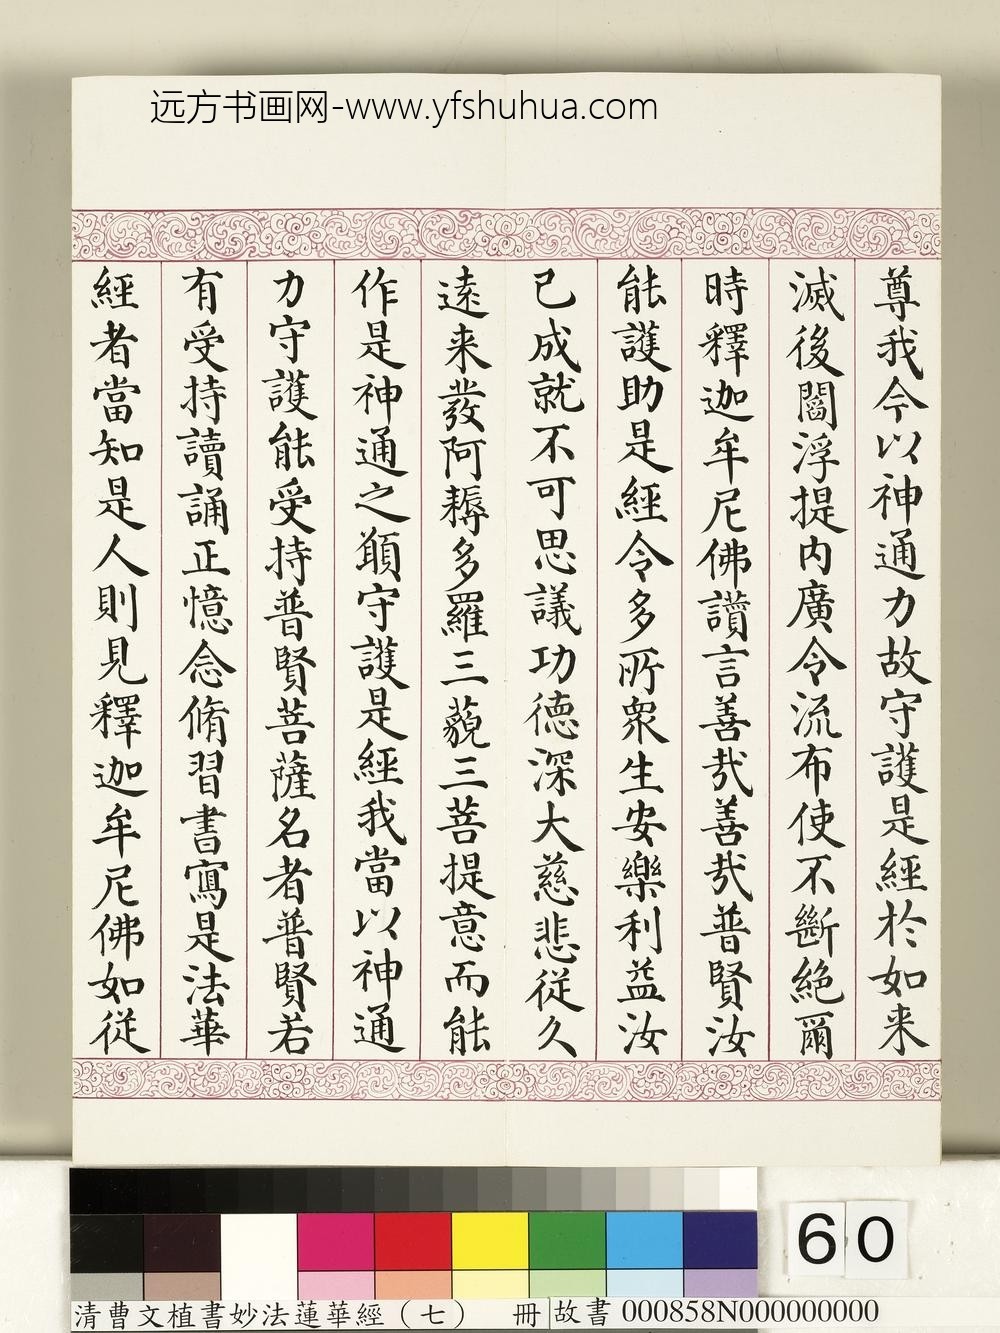 远方书画网-www.yfshuhua.com
尊我今以神通力故守護是經於如来
滅後閻浮提内廣令流布使不斷絶爾
時釋迦牟尼佛讚言善哉善哉普賢汝
能護助是經令多所衆生安樂利益汝
已成就不可思議功德深大慈悲從久
遠来發阿耨多羅三藐三菩提意而能
作是神通之願守護是經我當以神通
力守護能受持普賢菩薩名者普賢若
有受持讀誦正憶念脩習書寫是法華
經者當知是人則見釋迦牟尼佛如從
60
清曹文植書妙法蓮華經（七） 冊 故書 000858N000000000